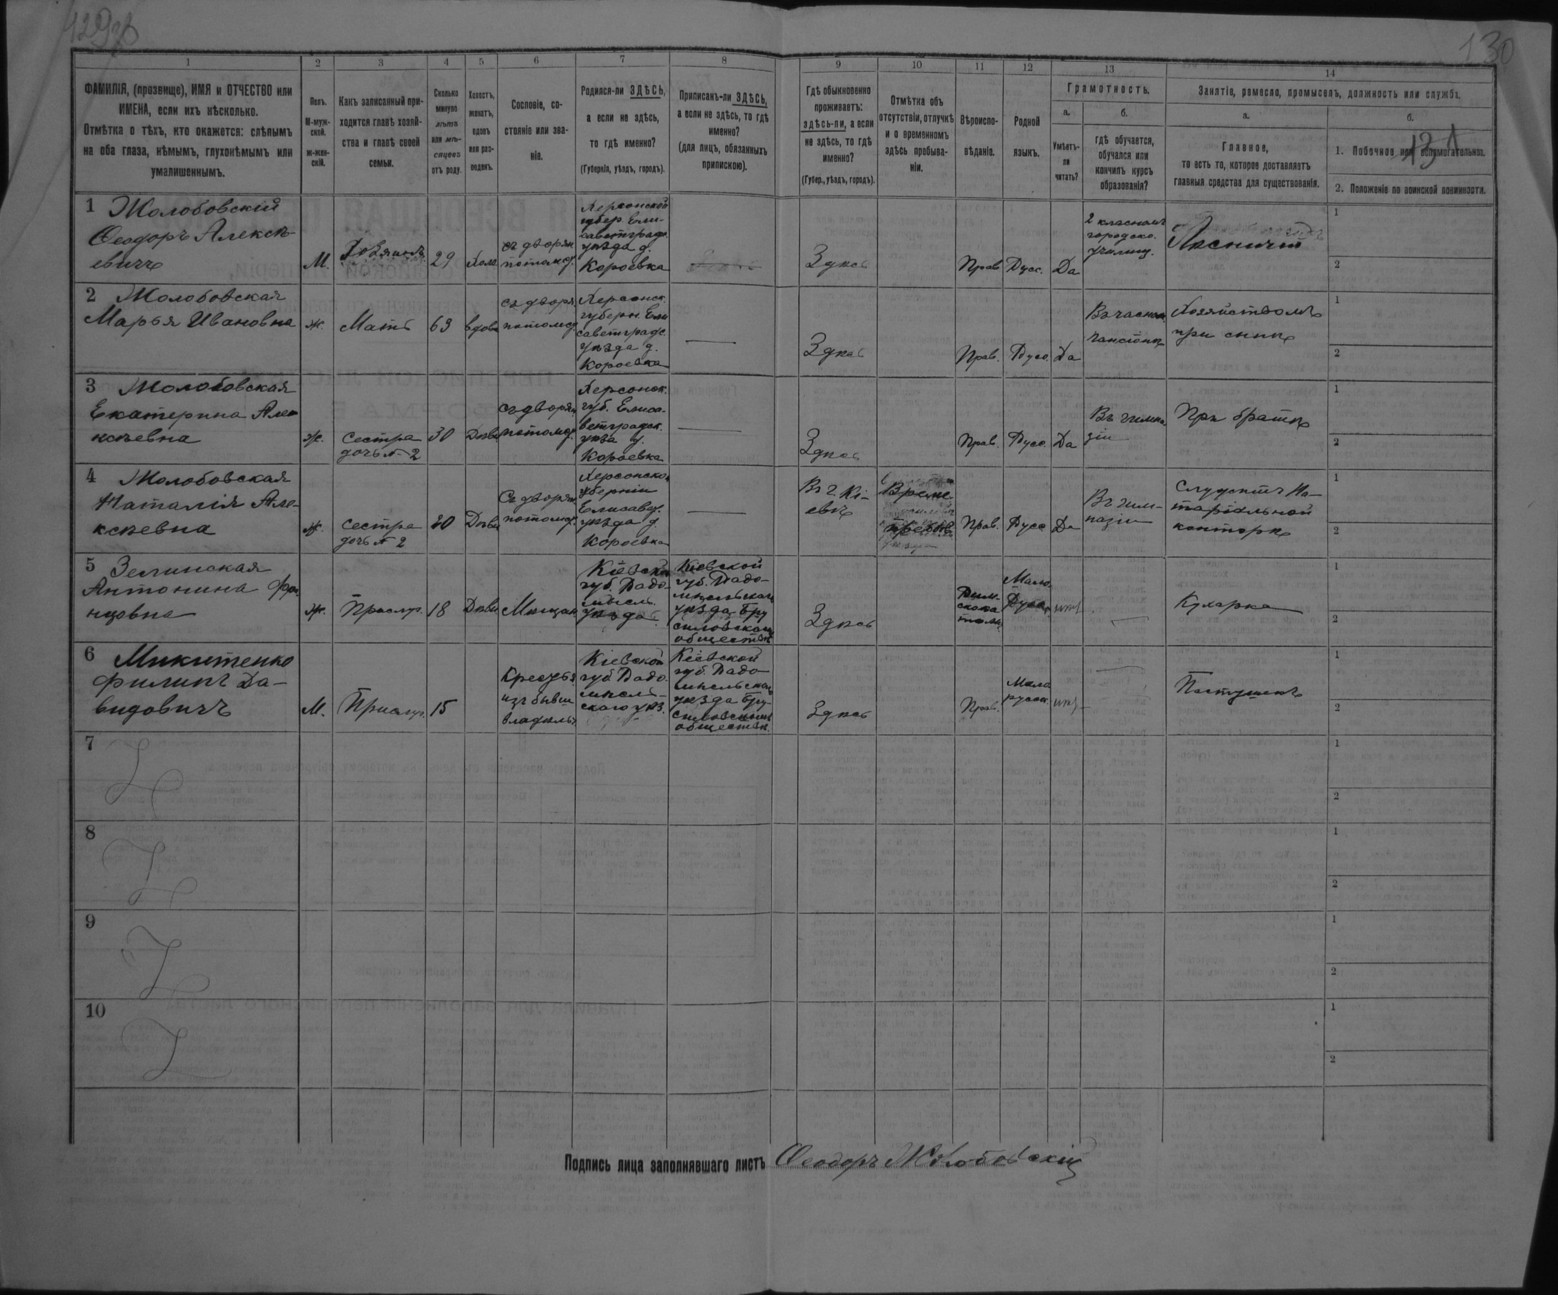 129об
130
131
1
2
3
4
5
6
7
8
9
10
11
12
13
14
ФАМИЛІЯ, (прозвище), ИМЯ и ОТЧЕСТВО или
ИМЕНА, если ихъ нѣсколько.
Отмѣтка о тѣхъ, кто окажется: слѣпымъ
на оба глаза, нѣмымъ, глухонѣмымъ или
умалишеннымъ.
Полъ.
М-муж-
ской.
ж-жен-
скій.
Какъ записанный при-
ходится главѣ хозяй-
ства и главѣ своей
семьи.
Сколько
минуло
лѣтъ
или мѣ-
сяцевъ
отъ роду.
Холостъ,
женатъ,
вдовъ
или раз-
веденъ.
Сословіе, со-
стояніе или зва-
ніе.
Родился-ли ЗДѢСЬ,
а если не здѣсь,
то гдѣ именно?
(Губернія, уѣздъ, городъ).
Приписанъ-ли ЗДѢСЬ,
а если не здѣсь, то гдѣ
именно?
(для лицъ, обязанныхъ
припискою).
Гдѣ обыкновенно
проживаетъ:
здѣсь-ли, а если
не здѣсь, то гдѣ
именно?
(Губер., уѣздъ, городъ).
Отмѣтка объ
отсутствіи, отлучкѣ
и о временномъ
здѣсь пребыва-
ніи.
Вѣроиспо-
вѣданіе.
Родной
языкъ.
Грамотность.
а.
Умѣетъ-
ли
читать?
б.
гдѣ обучается,
обучался или
кончилъ курсъ
образованія?
Занятіе, ремесло, промыселъ, должность или служба.
а.
Главное,
то есть то, которое доставляетъ
главныя средства для существованія.
б.
1. Побочное или вспомогательное.
2. Положеніе по воинской повинности.
1 Жолобовскій
Ѳеодоръ Алексѣ-
евичъ
М.
Хозяинъ
29
Хол.
съ дворян
потомст
Херсонской
губер Ели-
саветградс
уѣзда д.
Короевка
Здѣсь
Прав
Русс.
Да
2 класное
городско.
училищ.
Лѣсничій
1
2
2 Жолобовская
Марья Ивановна
ж.
Мать
63
вдова
съ дворя
потомст
Херсонск.
губерн Ели
саветградс
уѣзда д.
Короевка
Здѣсь
Прав.
Русс
Да
Въ частн
пансіонѣ
Хозяйствомъ
при сынѣ
1
2
3 Жолобовская
Екатерина Але
ксѣевна
ж.
сестра
дочь № 2
30
Дѣви
съ дворян
потомст
Херсонск.
губ. Елиса-
ветградск.
уѣзд д.
Короевка
Здѣсь
Прав.
Русс
Да
Въ гимна
зіи
При братѣ
1
2
4 Жолобовская
Наталія Але-
ксѣевна
ж.
сестра
дочь № 2
20
Дѣви
Съ дворян
потомст
Херсонской
губерніи
Елисавет.
уѣзда д
Короевка
Въ г. Кі-
евѣ
Време
Прав.
Русс
Да
Въ гим-
назіи
Служитъ Но-
таріальной
конторѣ
1
2
5 Зелинская
Антонина Фра
нцовна
ж.
Прислуг.
18
Дѣви
Мѣщан
Кіевской
губ. Радо-
мысль.
уѣзда
Кіевской
губ. Радо-
мысльскаго
уѣзда Бру
силовскаго
обществ
Здѣсь
Рим-
ско ка
толи
Мало
Русск
нѣт
Кухарка
1
2
6 Микитенко
Филипъ Да-
видовичъ
М.
Прислуг.
15
Крестья
изъ бывш
владѣль
Кіевской
губ Радо-
мысль-
скаго уѣз.
Кіевской
губ. Радо-
мысльскаго
уѣзда Бру
силовскаго
обществ
Здѣсь
Прав
Мало
русск
нѣт
Пастушекъ
1
2
7
1
2
8
1
2
9
1
2
10
1
2
Подпись лица заполнявшаго листъ Ѳеодоръ Жолобовскій